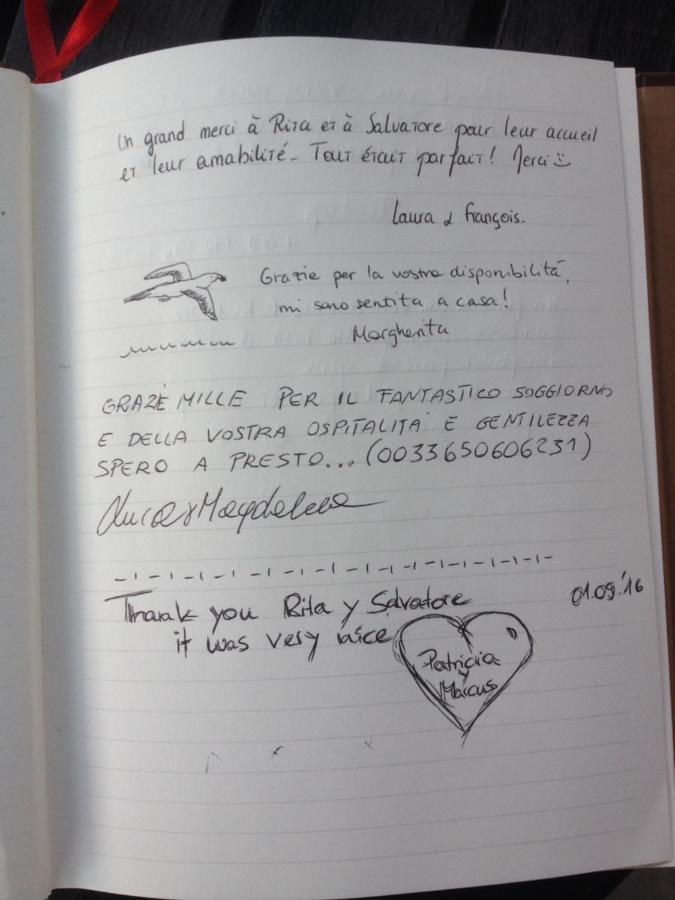 Un grand merci à Rita et à Salvatore pour leur accueil
et leur amabilité. Tout était parfait! Merci ☺
Laura & François.
Grazie per la vostra disponibilità,
mi sono sentita a casa!
Margherita
GRAZIE MILLE PER IL FANTASTICO SOGGIORNO
E DELLA VOSTRA OSPITALITA' E GENTILEZZA
SPERO A PRESTO... (0033650606231)
Luca & Magdalena
Thank you Rita y Salvatore
01.09.'16
it was very nice
Patricia
y
Marcus